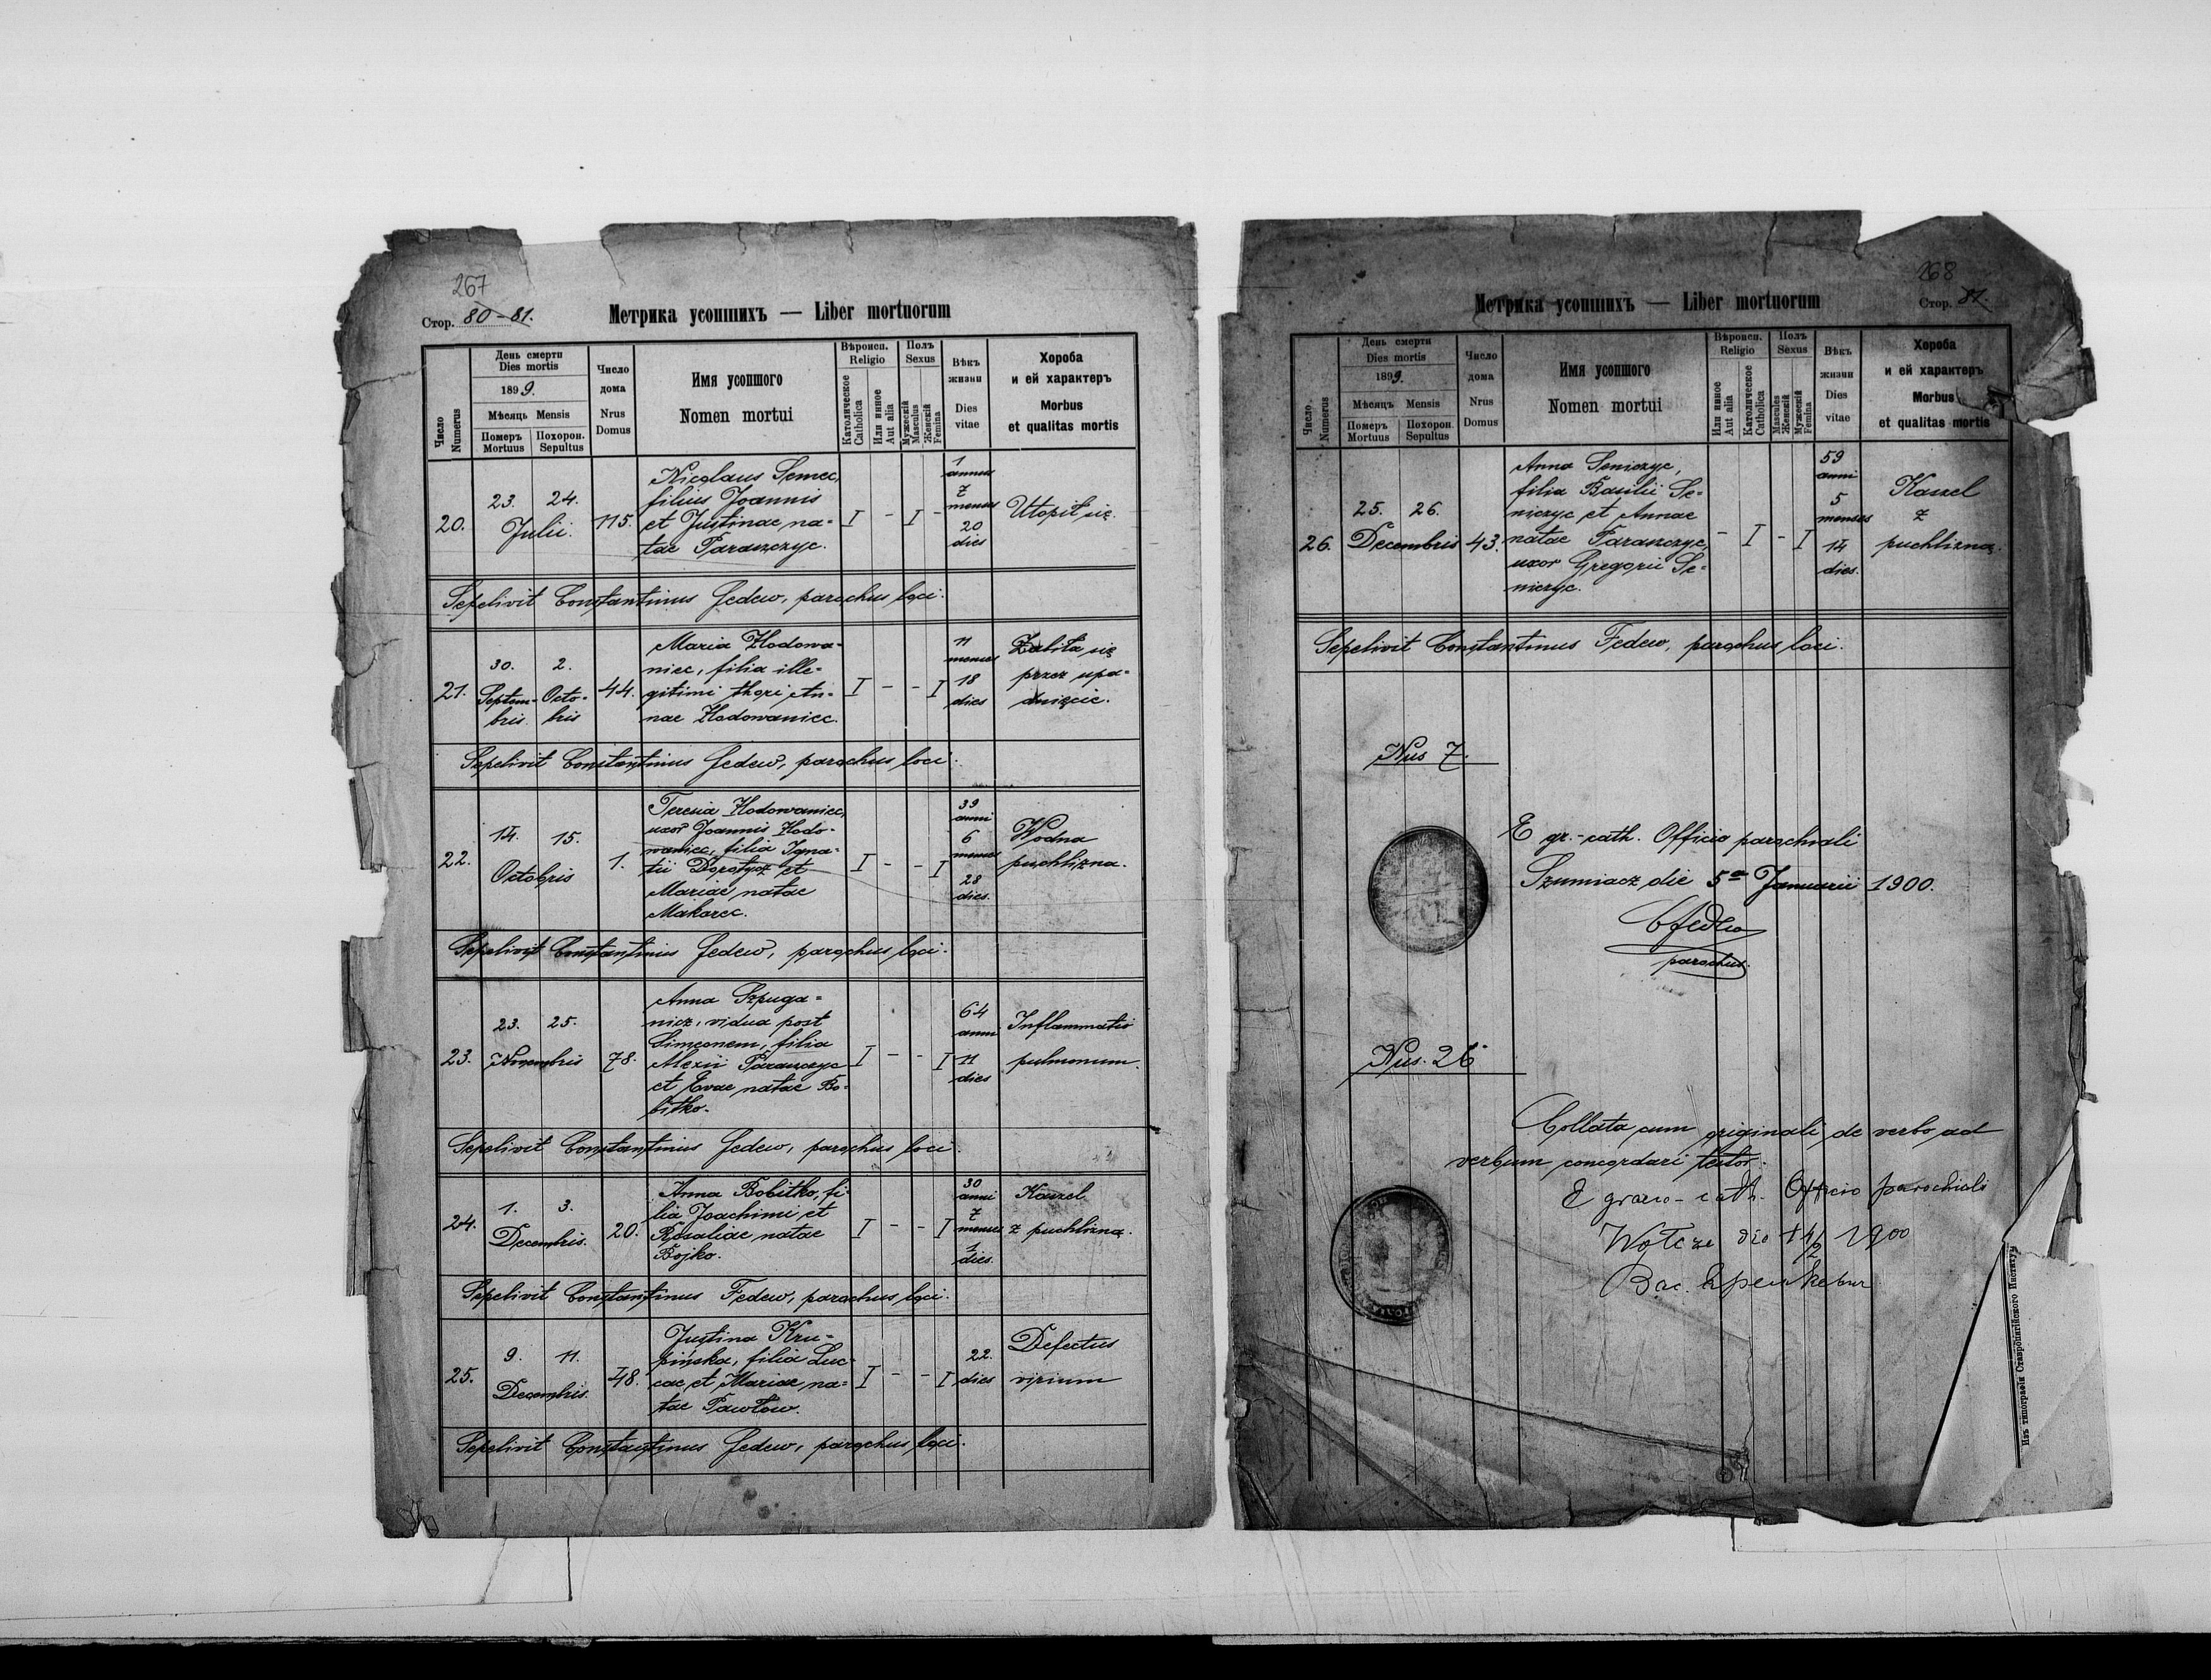 267
Стор. 80-81.
Метрика усопшихъ — Liber mortuorum
Число
Numerus
День смерти
Dies mortis
1899.
Мѣсяць Mensis
Померъ
Mortuus
Похорон.
Sepultus
Число
дома
Nrus
Domus
Имя усопшого
Nomen mortui
Вѣроисп.
Religio
Католическое
Catholica
Или инное
Aut alia
Полъ
Sexus
Мужескій
Masculus
Женскій
Femina
Вѣкъ
жизни
Dies
vitae
Хороба
и ей характеръ
Morbus
et qualitas mortis
20.
23. 24.
Julii.
115.
Nicolaus Semec,
filius Joannis
et Justinae na=
tae Paraszczyc.
I - I -
1
annus
7
menses
20
dies
Utopił się.
Sepelivit Constantinus Fedew, parochus loci.
21.
30. 2.
Septem- Octo-
bris. bris
44.
Maria Hodowa=
niec, filia ille=
gitimi thori An=
nae Hodowaniec.
I - - I
11
menses
18
dies
Zabiła się
przez upa=
dnięcie.
Sepelivit Constantinus Fedew, parochus loci.
22.
14. 15.
Octobris
1.
Teresia Hodowaniec,
uxor Joannis Hodo-
waniec, filia Igna-
tii Dorotycz et
Mariae natae
Makarec.
I - - I
39
anni
6
menses
28
dies.
Wodna
puchlizna.
Sepelivit Constantinus Fedew, parochus loci.
23.
23. 25.
Novembris
78.
Anna Szpuga=
nicz, vidua post
Simeonem, filia
Alexii Paraszczyc
et Evae natae Bo-
bitko.
I - - I
64
anni
11
dies
Inflammatio
pulmonum.
Sepelivit Constantinus Fedew, parochus loci.
24.
1. 3.
Decembris.
20.
Anna Bobitko, fi-
lia Joachimi et
Rosaliae natae
Bojko.
I - - I
30
anni
7
menses
1
dies.
Kaszel
z puchlizną.
Sepelivit Constantinus Fedew, parochus loci.
25.
9. 11.
Decembris.
48.
Justina Kru-
pińska, filia Luc-
cae et Mariae na=
tae Pawłow.
I - - I
22.
dies
Defectus
virium
Sepelivit Constantinus Fedew, parochus loci.
268
Стор. 81.
Метрика усопшихъ — Liber mortuorum
Число
Numerus
День смерти
Dies mortis
1899.
Мѣсяцъ Mensis
Померъ
Mortuus
Похорон.
Sepultus
Число
дома
Nrus
Domus
Имя усопшого
Nomen mortui
Вѣроисп.
Religio
Или инное
Aut alia
Католическое
Catholica
Полъ
Sexus
Masculus
Женскій
Мужескій
Femina
Вѣкъ
жизни
Dies
vitae
Хороба
и ей характеръ
Morbus
et qualitas mortis
26.
25. 26.
Decembris
43.
Anna Seniczyc,
filia Basilii Se=
niczyc et Annae
natae Paraszczyc,
uxor Gregorii Se=
niczyc.
- I - I
59
anni
5
menses
14
dies.
Kaszel
z
puchlizną.
Sepelivit Constantinus Fedew, parochus loci.
Nus 7.
E gr.-cath. Officio parochiali
Szumiacz die 5a Januarii 1900.
CFedew
parochus.
Nus. 26
Collata cum originali de verbo ad
verbum concordari testor.
E graeco-cath. Officio parochiali
Wołcze die 14/2 1900
Изъ типографіи Ставропигійского Института